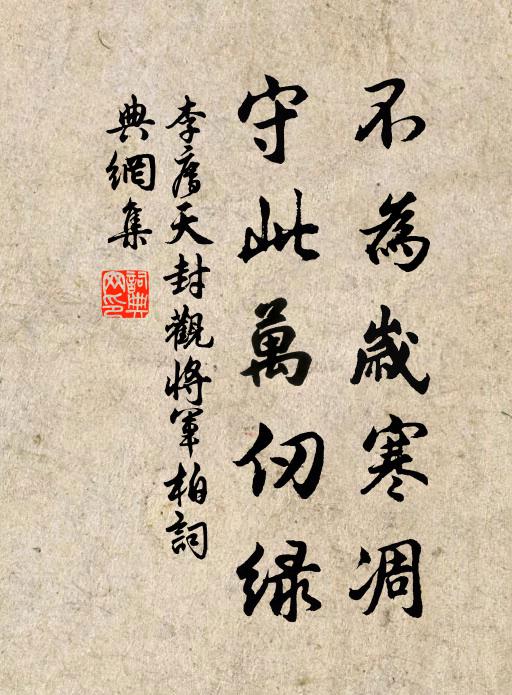 不為歲寒凋
守此萬仞綠
李廌天封觀將軍柏詞
典網集
詞典網印